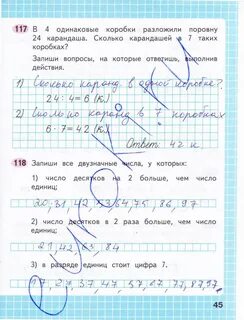 117 В 4 одинаковые коробки разложили поровну
24 карандаша. Сколько карандашей в 7 таких
коробках?
Запиши вопросы, на которые ответишь, выполнив
действия.
1) Сколько каранд. в одной коробке?
24 : 4 = 6 (к.)
2) Сколько каранд в 7 коробках
6 · 7 = 42 (к.)
Ответ: 42 к
118 Запиши все двузначные числа, у которых:
1) число десятков на 2 больше, чем число
единиц:
20, 31, 42, 53, 64, 75, 86, 97
2) число десятков в 2 раза больше, чем число
единиц:
21, 42, 63, 84
3) в разряде единиц стоит цифра 7.
17, 27, 37, 47, 57, 67, 77, 87, 97.
45